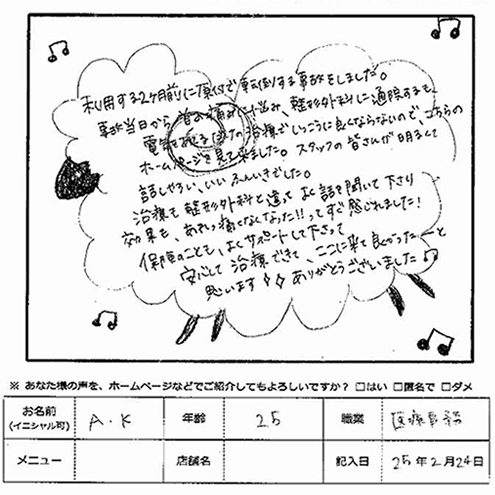 利用する2ヶ月前に原付で転倒する事故をしました。
事故当日から首の痛みが出て、整形外科に通院するも、
電気をあてるだけの治療でいっこうに良くならないので、こちらの
ホームページを見て来ました。スタッフの皆さんが明るくて
話しやすい、いいふんいきでした。
治療も整形外科と違って、よく話を聞いて下さり
効果も、あれっ痛くなくなった!!ってすぐ感じれました!
保険のことも、よくサポートして下さって
安心して治療できて、ここに来て良かったーと
思います ありがとうございました
※ あなた様の声を、ホームページなどでご紹介してもよろしいですか? □はい □匿名で □ダメ
お名前 (イニシャル可) A.K 年齢 25 職業 医療事務
メニュー 店舗名 記入日 25年2月24日